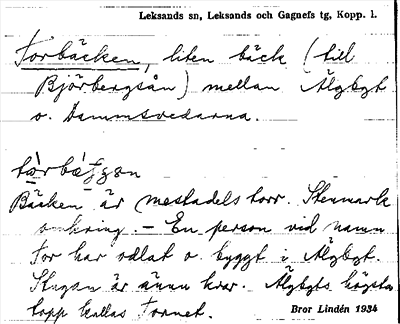 Leksands sn, Leksands och Gagnefs tg, Kopp. l.
Torbäcken, liten bäck (till
Björbergsån) mellan Älgbygt
o. Dammsvedarna.
Bäcken är mestadels torr. Stenmark
omkring. – En person vid namn
Tor har odlat o. byggt i Älgbygt.
Stugan är ännu kvar. Älgbygts högsta
topp kallas Tornet.
Bror Lindén 1934